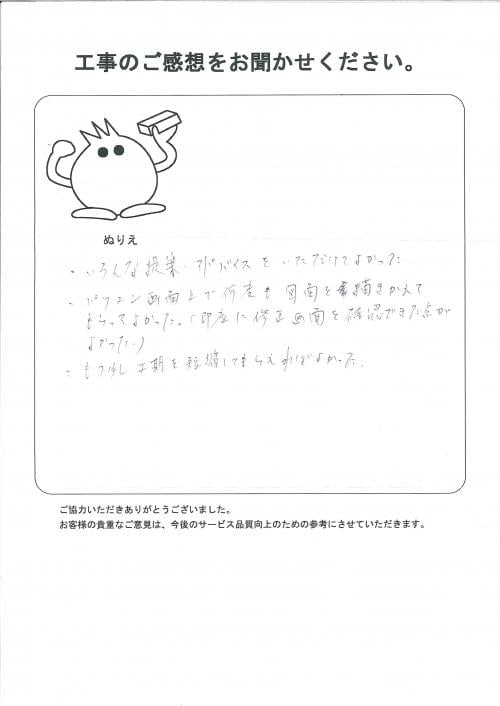 工事のご感想をお聞かせください。
ぬりえ
・いろんな提案・アドバイスをいただけてよかった。
・パソコン画面上で何度も図面を描きかえて
もらってよかった。(即座に修正画面を確認できた点が
よかった。)
・もう少し工期を短縮してもらえればよかった。
ご協力いただきありがとうございました。
お客様の貴重なご意見は、今後のサービス品質向上のための参考にさせていただきます。